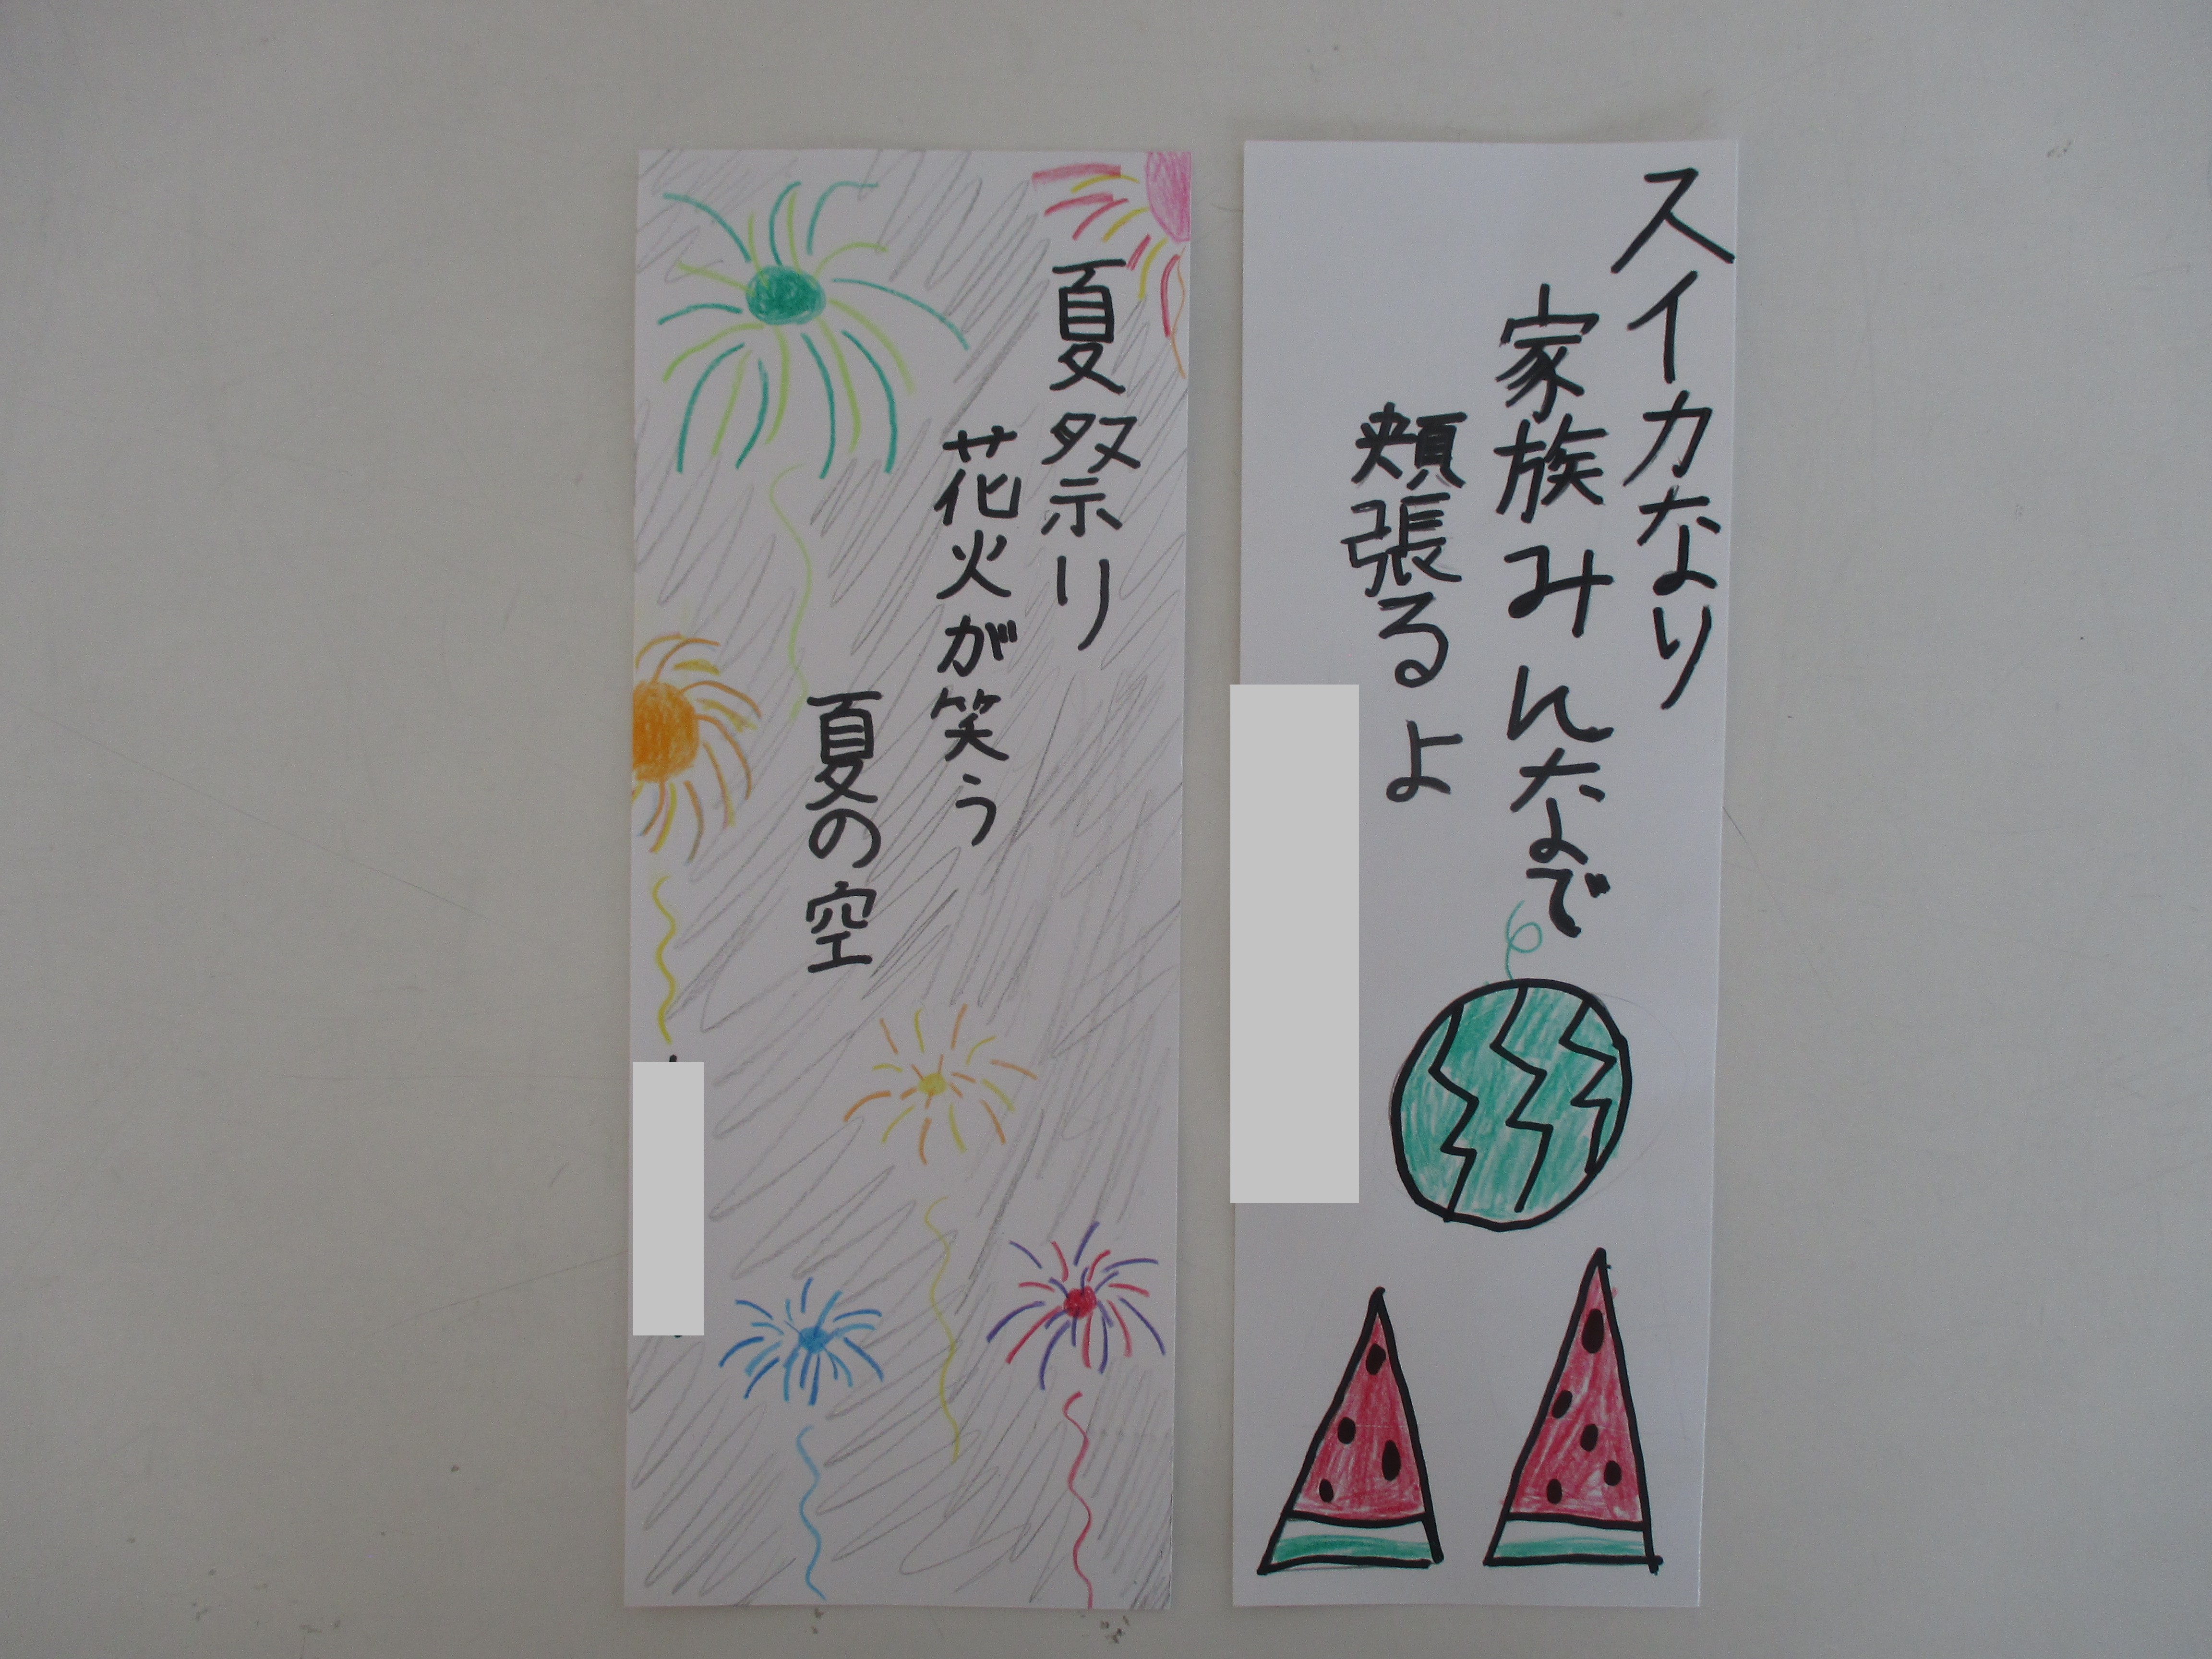 スイカなり
家族みんなで
頬張るよ
夏祭り
花火が笑う
夏の空